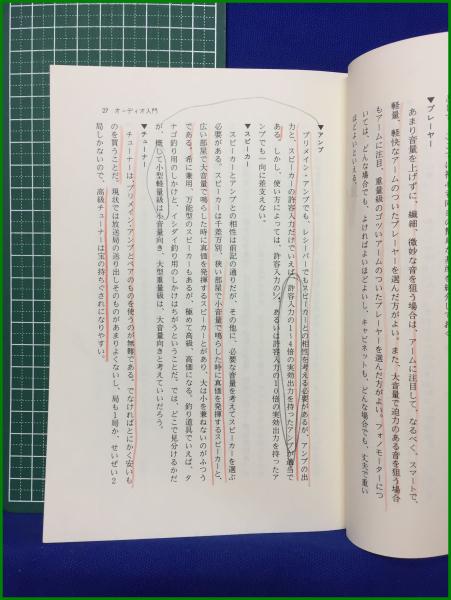 ▼プレーヤー
あまり音量を上げずに、繊細、微妙な音を狙う場合は、アームに注目して、なるべく、スマートで、
軽量、軽快なアームのついたプレーヤーを選んだ方がよい。また、大音量で迫力のある音を狙う場合
もアームに注目、重量級のゴツいアームのついたプレーヤーを選んだ方がよい。フォノモーターにつ
いては、どんな場合でも、よければよいほどよいし、キャビネットも、どんな場合でも、丈夫で重い
ほどよいといえる。
27 オーディオ入門
▼アンプ
プリメイン・アンプでも、レシーバーでもスピーカーとの相性を考える必要があるが、アンプの出
力と、スピーカーの許容入力だけでいえば、許容入力の1〜4倍の実効出力を持ったアンプが適当で
ある。しかし、使い方によっては、許容入力の
あるいは許容入力の10倍の実効出力を持ったア
ンプでも一向に差支えない。
▼スピーカー
スピーカーとアンプとの相性は前記の通りだが、その他に、必要な音量を考えてスピーカーを選ぶ
必要がある。スピーカーは千差万別、狭い部屋で小音量で鳴らした時に真価を発揮するスピーカーと、
広い部屋で大音量で鳴らした時に真価を発揮するスピーカーとがあり、大は小を兼ねないのがふつう
である。希に兼用、万能型のスピーカーもあるが、極めて高級、高価になる。釣り道具でいえば、タ
ナゴ釣り用のしかけと、イシダイ釣り用のしかけはちがうということだ。では、どこで見分けるかだ
が、概して小型軽量級は小音量向き、大型重量級は、大音量向きと考えていいだろう。
▼チューナー
チューナーは、プリメイン・アンプとペアのものを使うのが無難である。でなければとにかく安いも
のを買うことだ。現状では放送局の送り出しそのものがあまりよくないし、局も1局か、せいぜい2
局しかないので、高級チューナーは宝の持ちぐされになりやすい。